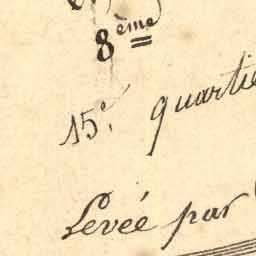 8ème
15e. quartie
Levée par